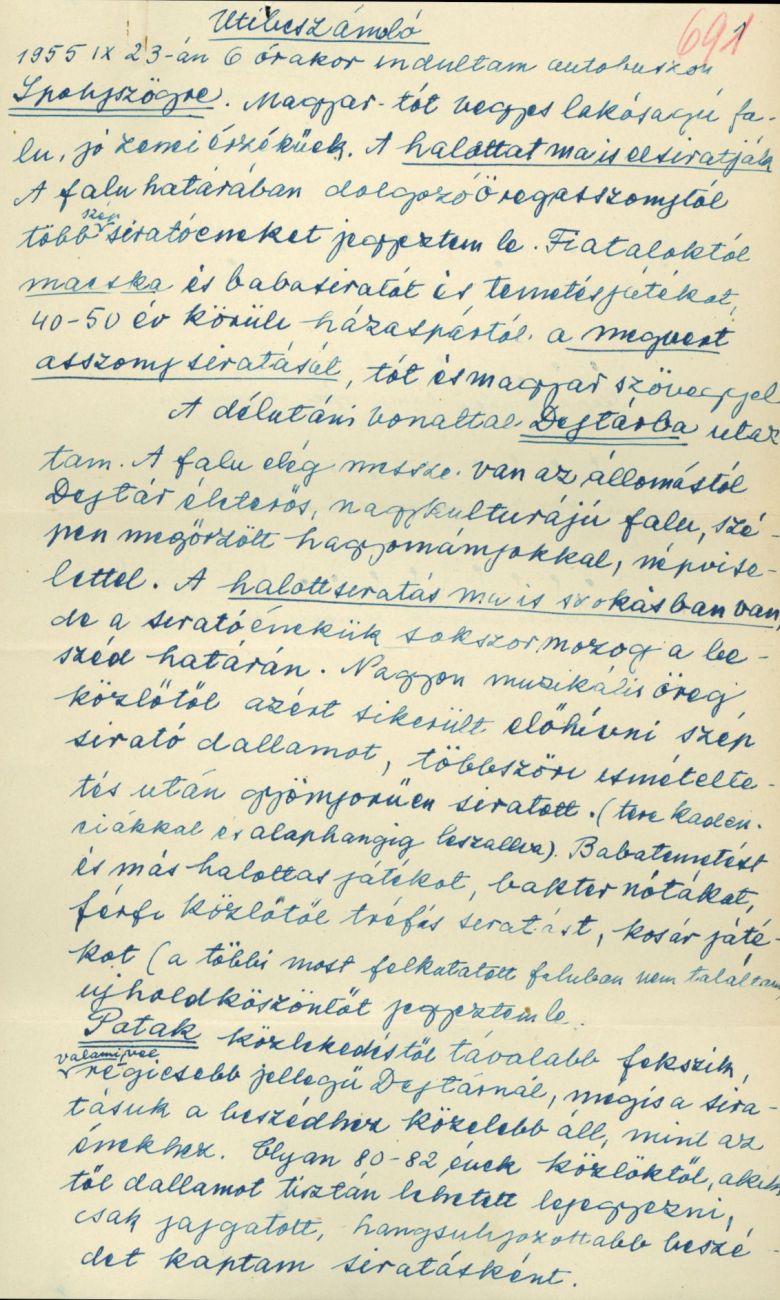 Utibeszámoló
691
1
1955 IX 23-án 6 órakor indultam autobuszon
Ipolyszögre. Magyar-tót vegyes lakóságú fa-
lu, jó zenei érzékűek. A halottat ma is elsiratják
A falu határában dolgozó öregasszonytól
több szép siratóéneket jegyeztem le. Fiataloktól
macska és babasiratót és temetésjátékot,
40-50 év körüli házaspártól a megvert
asszony siratását, tót és magyar szöveggel
A délutáni vonattal Dejtárba utaz
tam. A falu elég messze van az állomástól
Dejtár életerős, nagykulturájú falu, szé-
pen megőrzött hagyományokkal, népvise-
lettel. A halottsiratás ma is szokásban van,
de a siratóénekük sokszor mozog a be-
széd határán. Nagyon muzikális öreg
közlőtől azért sikerült előhívni szép
sirató dallamot, többszöri ismételte-
tés után gyönyörűen siratott. (terc kaden-
ciákkal és alaphangig leszállva). Babatemetést
és más halottas játékot, bakter nótákat,
férfi közlőtől tréfás siratást, kosár játé-
kot (a többi most felkutatott faluban nem találtam
ujholdköszöntőt jegyeztem le.
Patak közlekedéstől távolabb fekszik,
valamivel régiesebb jellegű Dejtárnál, mégis a sira-
tásuk a beszédhez közelebb áll, mint az
énekhez. Olyan 80-82 éves közlőktől, akik
től dallamot tisztán lehetett lejegyezni,
csak jajgatott, hangsulyozottabb beszé-
det kaptam siratásként.